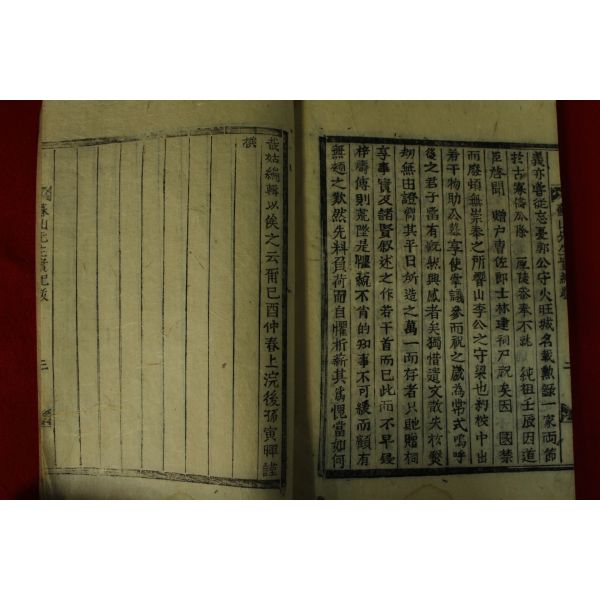 義亦嘗從忘憂郭公守火旺城名載勳錄一家兩節
於古寡儔公除 厚陵參奉不就 純祖壬辰因道
臣啓聞 贈戶曹佐郎士林建祠尸祝矣因 國禁
而廢頃無崇奉之所響山李公之守梁也刹稧中出
若干物助公墓享使峯議參而祝之歲為常式嗚呼
後之君子當有慨然興感者矣獨惜遺文散失於燹
刼無由證嚮其平日所造之萬一而存者只貤贈祠
享事實及諸賢叙述之作若干首而已此而不早錄
梓壽傳則荒墜是懼藐不肖的知事不可緩而顧有
無麵之歎然先料負荷而自懼析薪其為愧當如何
哉姑編輯以俟之云爾己酉仲春上浣後孫寅暉謹
撰
春山先生實紀跋
二